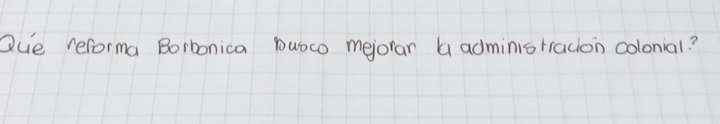 Qué reforma Borbonica busco mejorar la administración colonial?